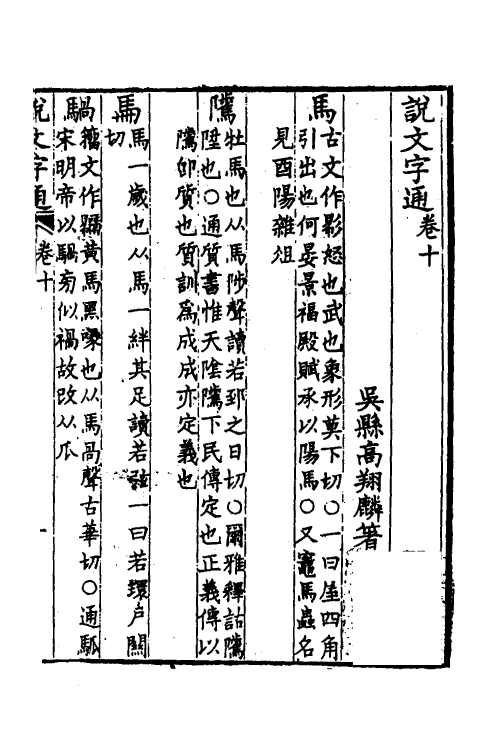 說文字通卷十
吳縣高翔麟著
馬
古文作影怒也武也象形莫下切○一曰屋四角
引出也何晏景福殿賦承以陽馬○又竈馬蟲名
見酉陽雜俎
隲
牡馬也从馬陟聲讀若郅之日切○爾雅釋詁隲
陞也○通質書惟天陰隲下民傳定也正義傳以
隲卽質也質訓爲成成亦定義也
𩡧
馬一歲也从馬一絆其足讀若弦一曰若環户關
切
騧
籀文作黃馬黑喙也从馬咼聲古華切○通
宋明帝以騧旁似禍故改从瓜
說文字通 卷十